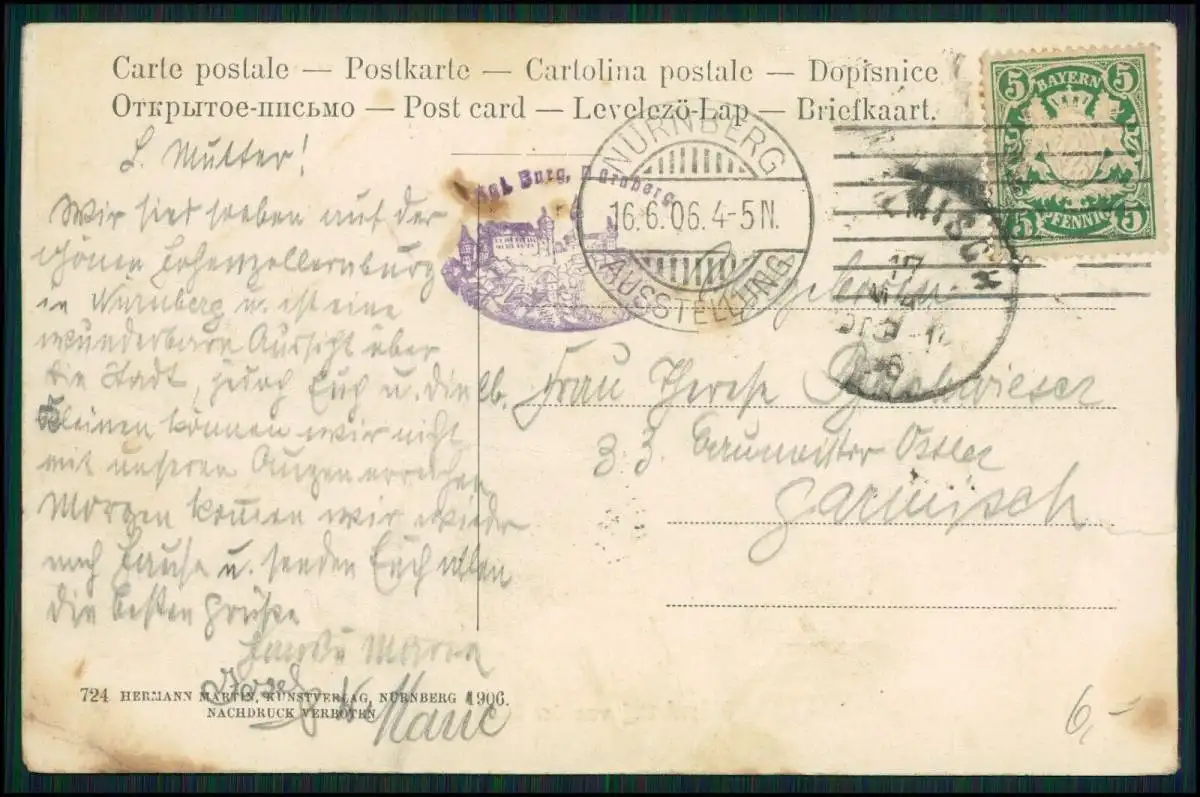 Carte postale — Postkarte — Cartolina postale — Dopisnice
Открытое-письмо — Post card — Levelező-Lap — Briefkaart.
5 BAYERN 5
5 PFENNIG 5
NÜRNBERG
16.6.06. 4-5 N.
AUSSTELLUNG
Kgl. Burg, Nürnberg
L. Mutter!
Wir sind soeben auf der
schönen Hohenzollernburg
in Nürnberg u. ist eine
wunderbare Aussicht über
die Stadt, jedoch Euch u. die lb.
Kleinen können wir nicht
mit unseren Augen erreichen
Morgen kommen wir wieder
nach Hause u. senden Euch allen
die besten Grüße
Maria
Josef
Marie
Frau Therese
z. Z. Baumeister Ostler
Garmisch
17
724 HERMANN MARTIN, KUNSTVERLAG, NÜRNBERG 1906.
NACHDRUCK VERBOTEN
6,-